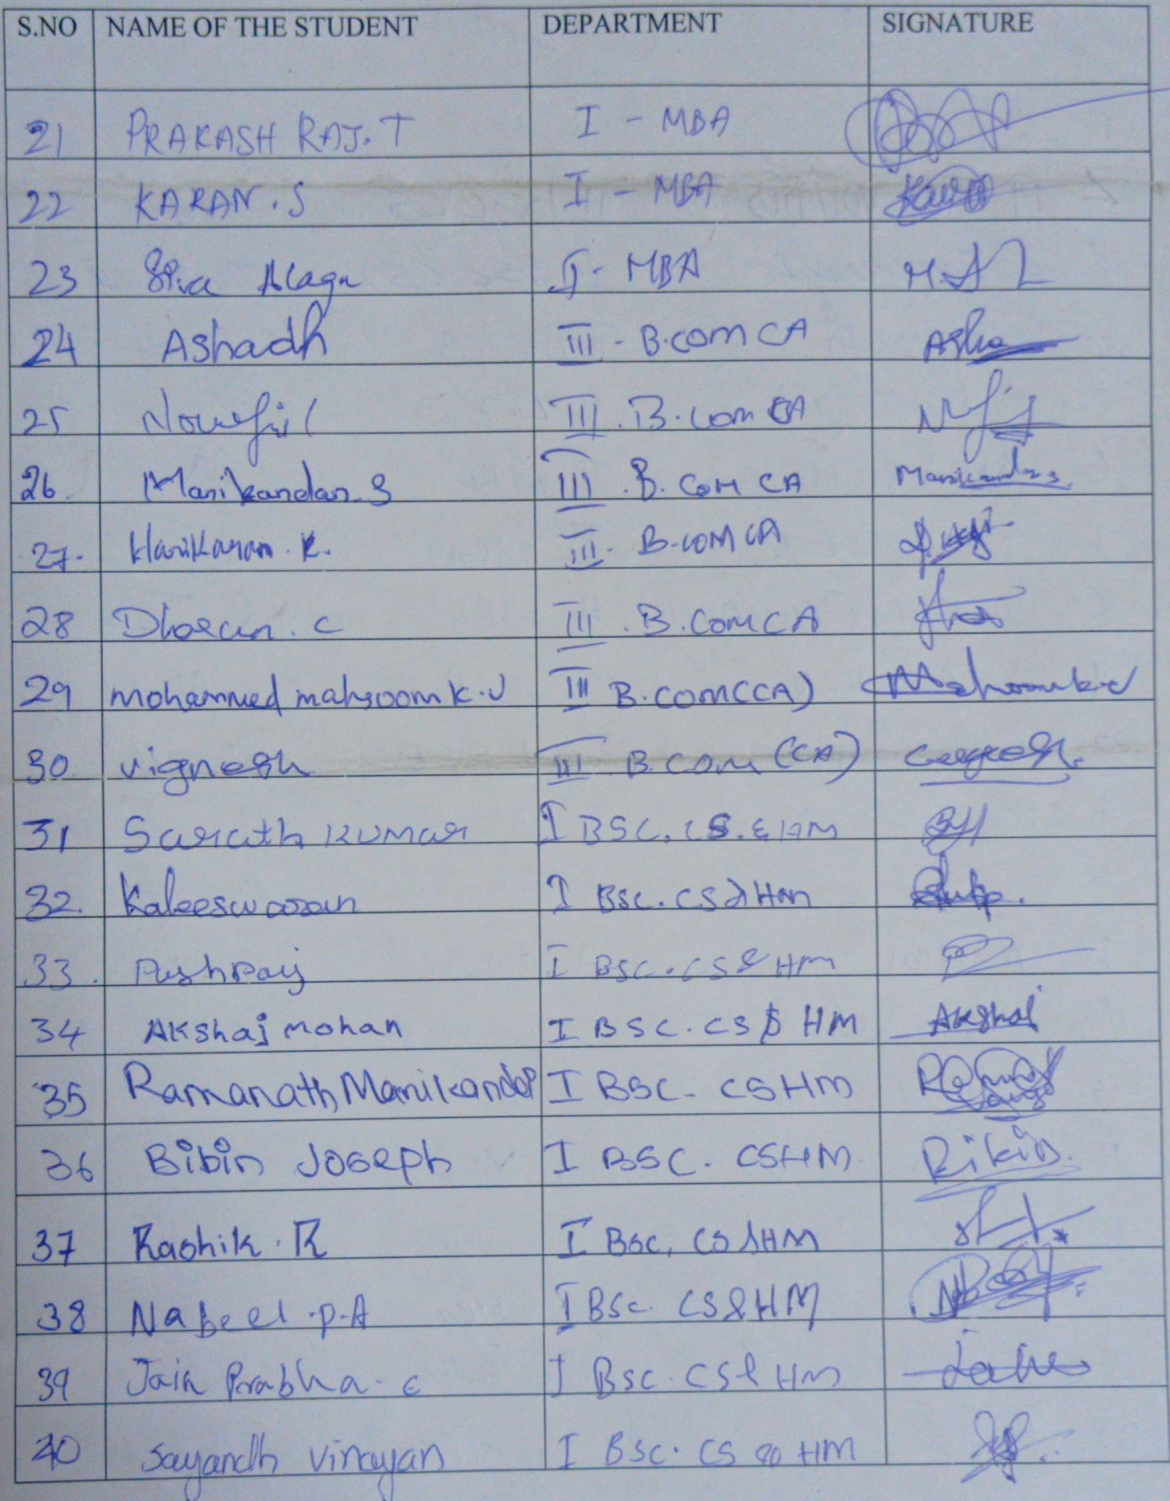 S.NO NAME OF THE STUDENT DEPARTMENT SIGNATURE
21 PRAKASH RAJ.T I - MBA
22 KARAN.S I - MBA
23 Siva Alagu II - MBA
24 Ashadh III - B.COM CA
25 Noufil III. B.com CA
26. Manikandan.S III. B. COM CA Manikandan.s
27. Harikaran.K. III. B.COM CA
28 Dharun.c III. B.COM CA
29 mohammed mahsoom k.v III B.COM(CA)
30. vignesh III B.COM (CA)
31 Sarath KUMAR I BSC. CS. & HM
32. Kaleeswaran I BSC. CS & HM
33. Pushraj I BSC. CS & HM
34 Akshaj mohan I BSC. CS $ HM Akshaj
35 Ramanath Manikandan I BSC. CSHM
36 Bibin Joseph I BSC. CSHM Bibin
37 Rashik.R I BSC, CS & HM
38 Nabeel.P.A I BSc. CS & HM
39 Jain Prabha.c I BSC. CS & HM
40 Sayandh vinayan I BSC. CS & HM